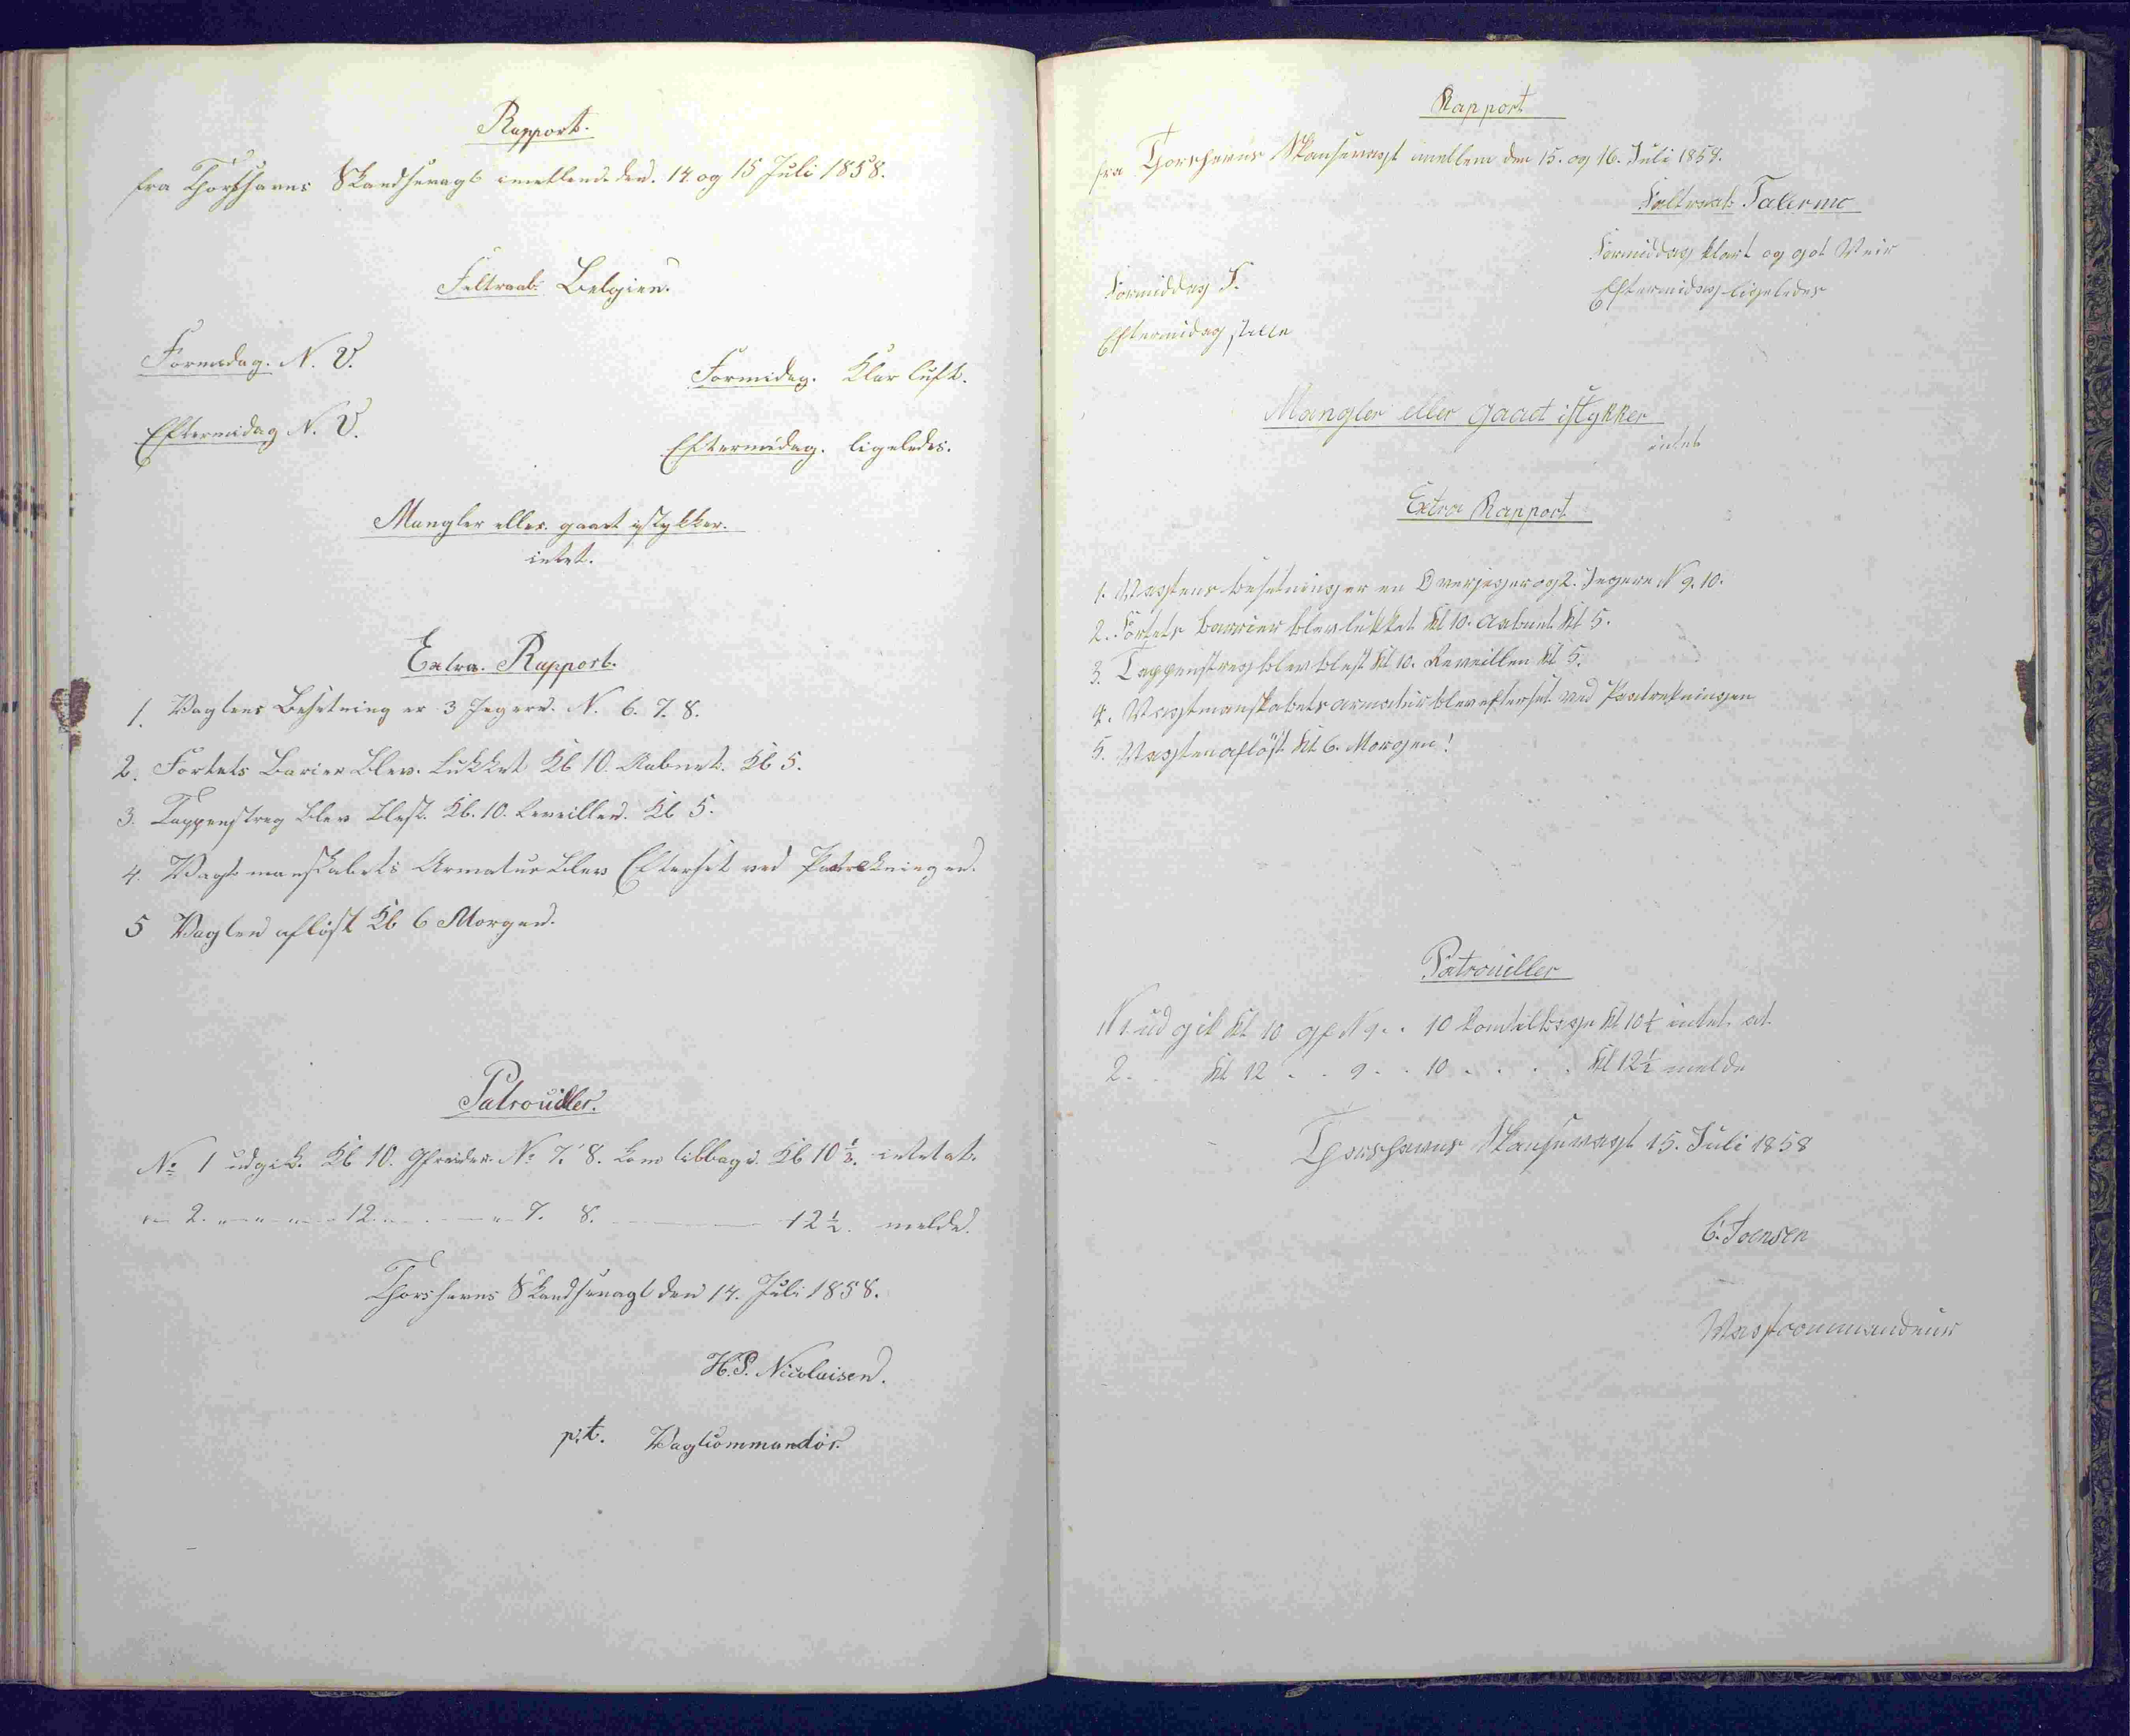 Rapport.
fra Thorshavns Skandsevagt imellem den. 14 og 15 Juli 1858.
Feltraab: Belgien.
Formidag. N. V.
Formidag. Klar luft.
Eftermidag N. V.
Eftermidag. ligeledes.
Mangler eller gaaet istykker.
intet.
Extra. Rapport.
1. Vagtens Besetning er 3 Jegere. N. 6. 7. 8.
2. Fortets Barier blev. Lukket Kl 10. Aabnet. Kl 5.
3. Tappenstreg blev blest. Kl. 10. Reveillen. Kl 5.
4. Vagtmanskabets Armatur blev Efterset ved Patrekningen.
5 Vagten afløst Kl 6 Morgen.
Patrouiller.
No 1 udgik. Kl 10. Gefreider. No 7. 8. kom tilbage. Kl 10 ½. intet at.
" 2. " " " 12 " " 7. 8. 12 ½. melde.
Thorshavns Skandsevagt den 14. Juli 1858.
H.P. Nicolaisen.
p.t. Vagtcommandør.
Rapport
fra Thorshavns Skansevagt imellem den 15. og 16. Juli 1858.
Feltraab: Palermo
Formiddag klart og got Veir
Formiddag S.
Eftermidag ligeledes
Eftermidag stille
Mangler eller gaaet istykker
intet
Extra Rapport
1. Vagtens besetning er en Overjeger og 2. Jegere N 9. 10.
2. Fortets barrier blev lukket kl 10. aabnet kl 5.
3. Tappenstreg blev blest kl 10. Reveillen kl 5.
4. Vagtmanskabets armatur blev efterset ved Paatrekningen
5. Vagten afløst kl 6. Morgen!
Patrouiller
N 1. udgik kl 10 gf N 9. . 10 kom tilbage kl 10½ intet at
2. . kl 12 . . 9 . . 10 . . . . kl 12½ melde
Thorshavns Skansevagt 15. Juli 1858
C. Joensen
Vagtcommandeur